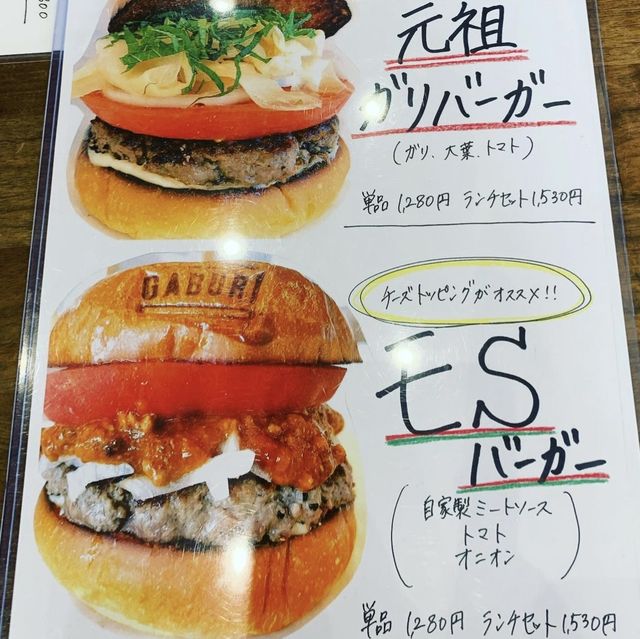 元祖
ガリバーガー
(ガリ、大葉、トマト)
単品 1,280円 ランチセット 1,530円
GABURI
チーズトッピングがオススメ!!
モS
バーガー
(自家製ミートソース
トマト
オニオン)
単品 1,280円 ランチセット 1,530円